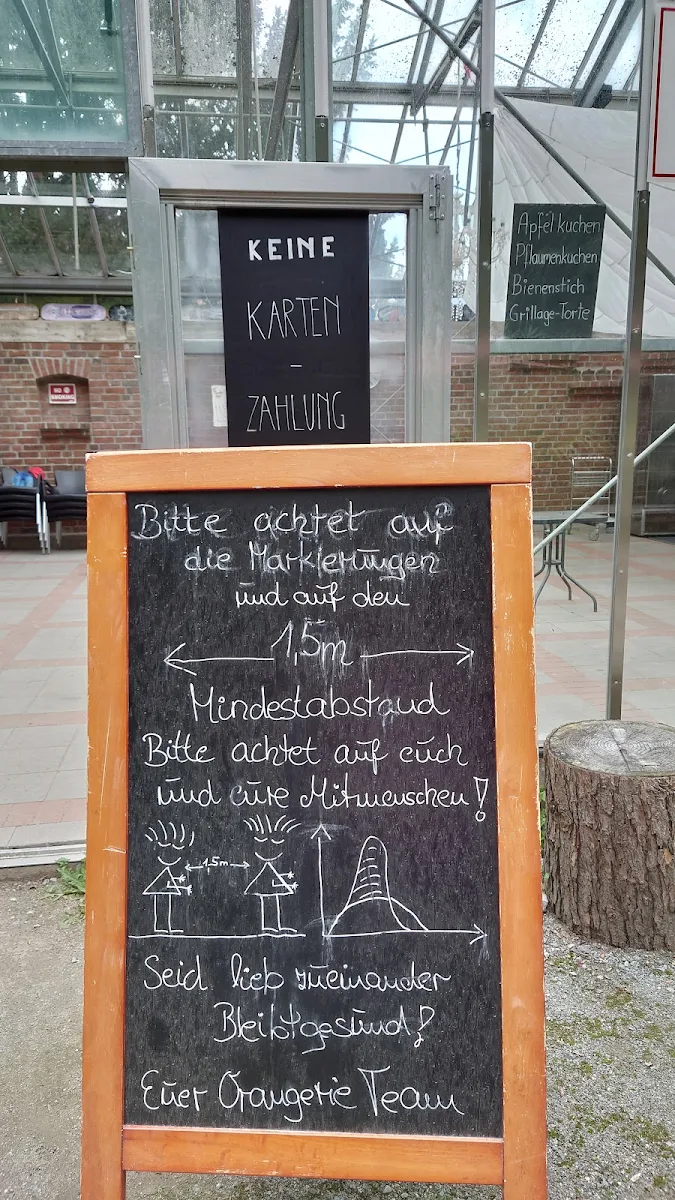 KEINE
KARTEN
-
ZAHLUNG
Apfelkuchen
Pflaumenkuchen
Bienenstich
Grillage-Torte
NO
SMOKING
Bitte achtet auf
die Markierungen
und auf den
1,5m
Mindestabstand
Bitte achtet auf euch
und eure Mitmenschen!
1,5m
Seid lieb zueinander
Bleibt gesund!
Euer Orangerie Team